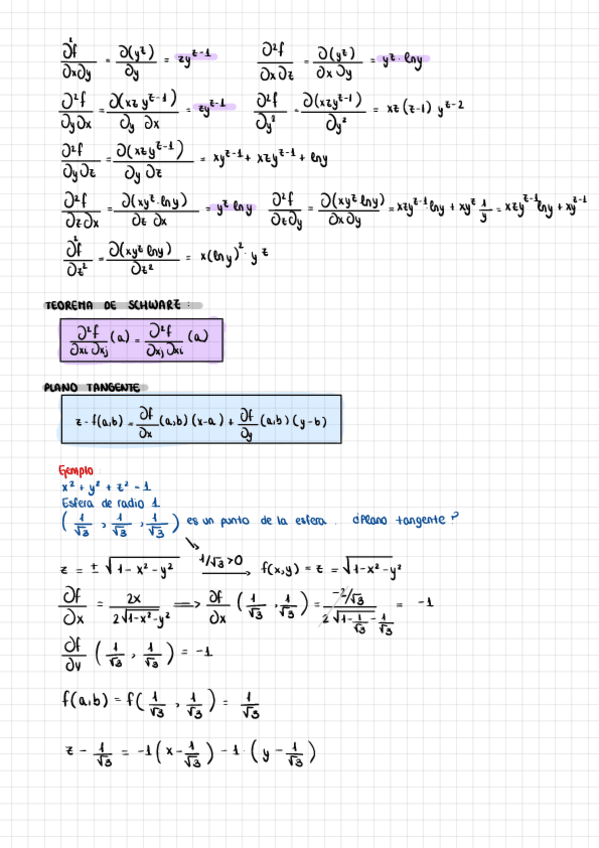 ∂²f/∂x∂y = ∂(y^z)/∂y = zy^(z-1) ∂²f/∂x∂z = ∂(y^z)/∂x∂y = y^z · lny
∂²f/∂y∂x = ∂(xzy^(z-1))/∂y ∂x = zy^(z-1) ∂²f/∂y² = ∂(xzy^(z-1))/∂y² = xz(z-1) y^(z-2)
∂²f/∂y∂z = ∂(xzy^(z-1))/∂y ∂z = xy^(z-1) + xzy^(z-1) + lny
∂²f/∂z∂x = ∂(xy^z · lny)/∂z ∂x = y^z lny ∂²f/∂z∂y = ∂(xy^z lny)/∂x∂y = xzy^(z-1) lny + xy^z 1/y = xzy^(z-1) lny + xy^(z-1)
∂²f/∂z² = ∂(xy^z lny)/∂z² = x(lny)² · y^z
TEOREMA DE SCHWARZ :
∂²f/∂xi ∂xj (a) = ∂²f/∂xj ∂xi (a)
PLANO TANGENTE
z - f(a,b) = ∂f/∂x (a,b) (x-a) + ∂f/∂y (a,b) (y-b)
Ejemplo
x² + y² + z² = 1
Esfera de radio 1.
(1/√3 , 1/√3 , 1/√3) es un punto de la esfera. ¿Plano tangente?
z = ± √(1-x²-y²) 1/√3>0 → f(x,y) = z = √(1-x²-y²)
∂f/∂x = 2x/(2√(1-x²-y²)) ⟹ ∂f/∂x (1/√3 , 1/√3) = (-2/√3)/(2√(1-1/√3-1/√3)) = -1
∂f/∂y (1/√3 , 1/√3) = -1
f(a,b) = f(1/√3 , 1/√3) = 1/√3
z - 1/√3 = -1(x-1/√3) -1·(y-1/√3)